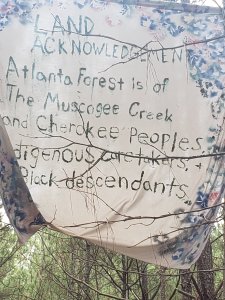 LAND
ACKNOWLEDGEMENT
Atlanta Forest is of
The Muscogee Creek
and Cherokee Peoples
digenous caretakers, +
Black descendants